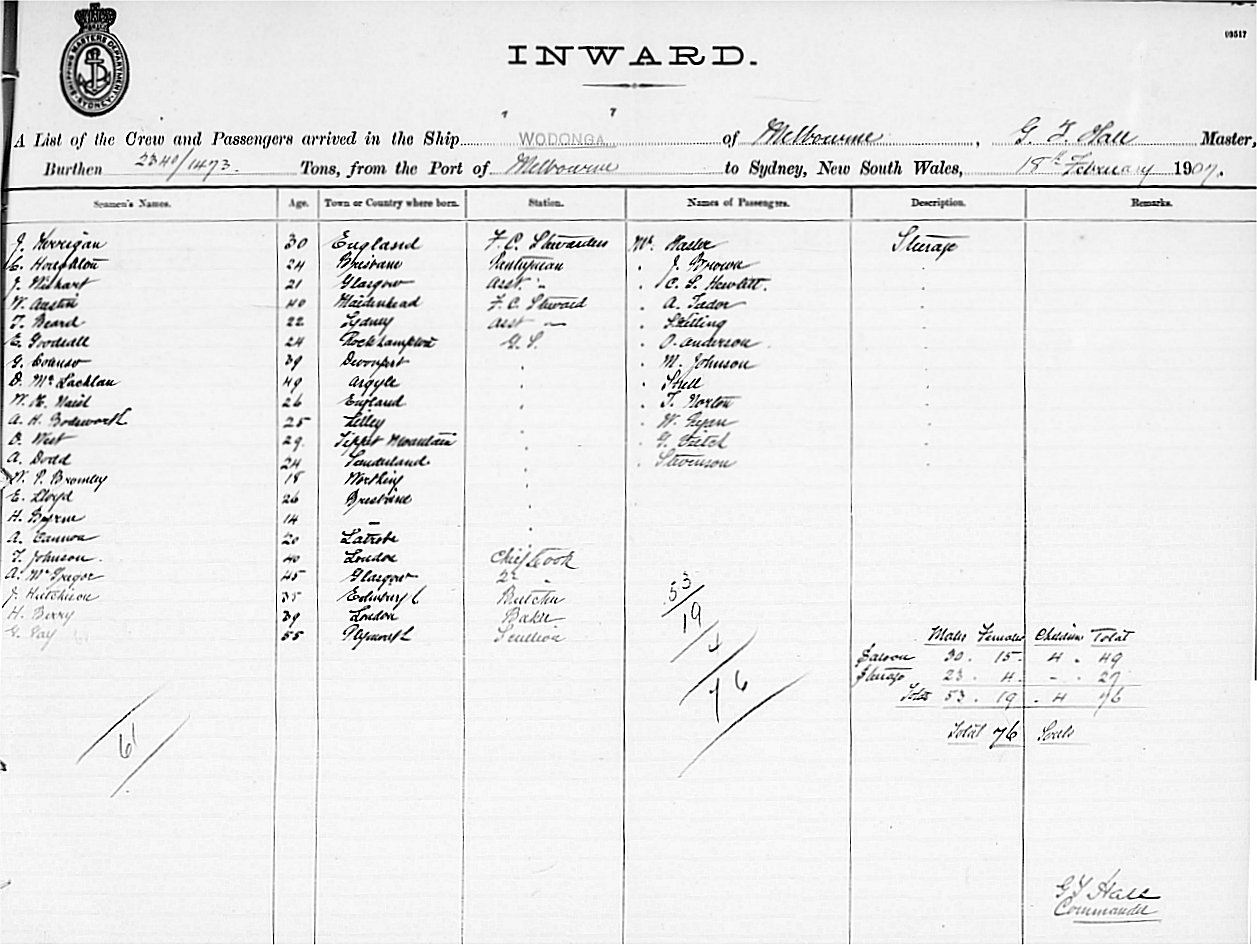 SHIPPING MASTERS DEPARTMENT SYDNEY
03517
INWARD.
A List of the Crew and Passengers arrived in the Ship WODONGA of Melbourne, G. F. Hall Master,
Burthen 2340/1473. Tons, from the Port of Melbourne to Sydney, New South Wales, 18th February 1907.
Seamen's Names. Age. Town or Country where born. Station. Names of Passengers. Description. Remarks.
J. Horrigan 30 England F. C. Stewardess Mr. Steerage
C. Houghton 24 Brisbane Pantryman J. Brown
J. Wishart 21 Glasgow Asst. " C. S. Hewlitt.
W. Austin 40 Maidenhead F. C. Steward A.
T. Beard 22 Sydney Asst "
E. Goodsall 24 Rockhampton G. S. O. Anderson
G. 39 Devonport M. Johnson
D. McLachlan 49 Argyle
W. H. 26 England T. Norton
A. H. Bodsworth 25 W. Ryan
D. West 29 Mountain
A. Dodd 24 Sunderland Stevenson
W. P. Bromley 18 Worthing
E. Lloyd 26 Brisbane
H. Byrne 14 –
A. Cannon 20 Latrobe
T. Johnson 40 London Chief Cook
A. McGregor 45 Glasgow 2nd "
J. Hutchison 35 Edinburgh Butcher
H. Berry 39 London Baker
G. 55 Plymouth Scullion
53
19
4
76
61
Males Females Children Total
Saloon 30 . 15 . 4 . 49
Steerage 23 . 4 . - . 27
Total 53 . 19 . 4 76
Total 76 Souls
G F Hall
Commander